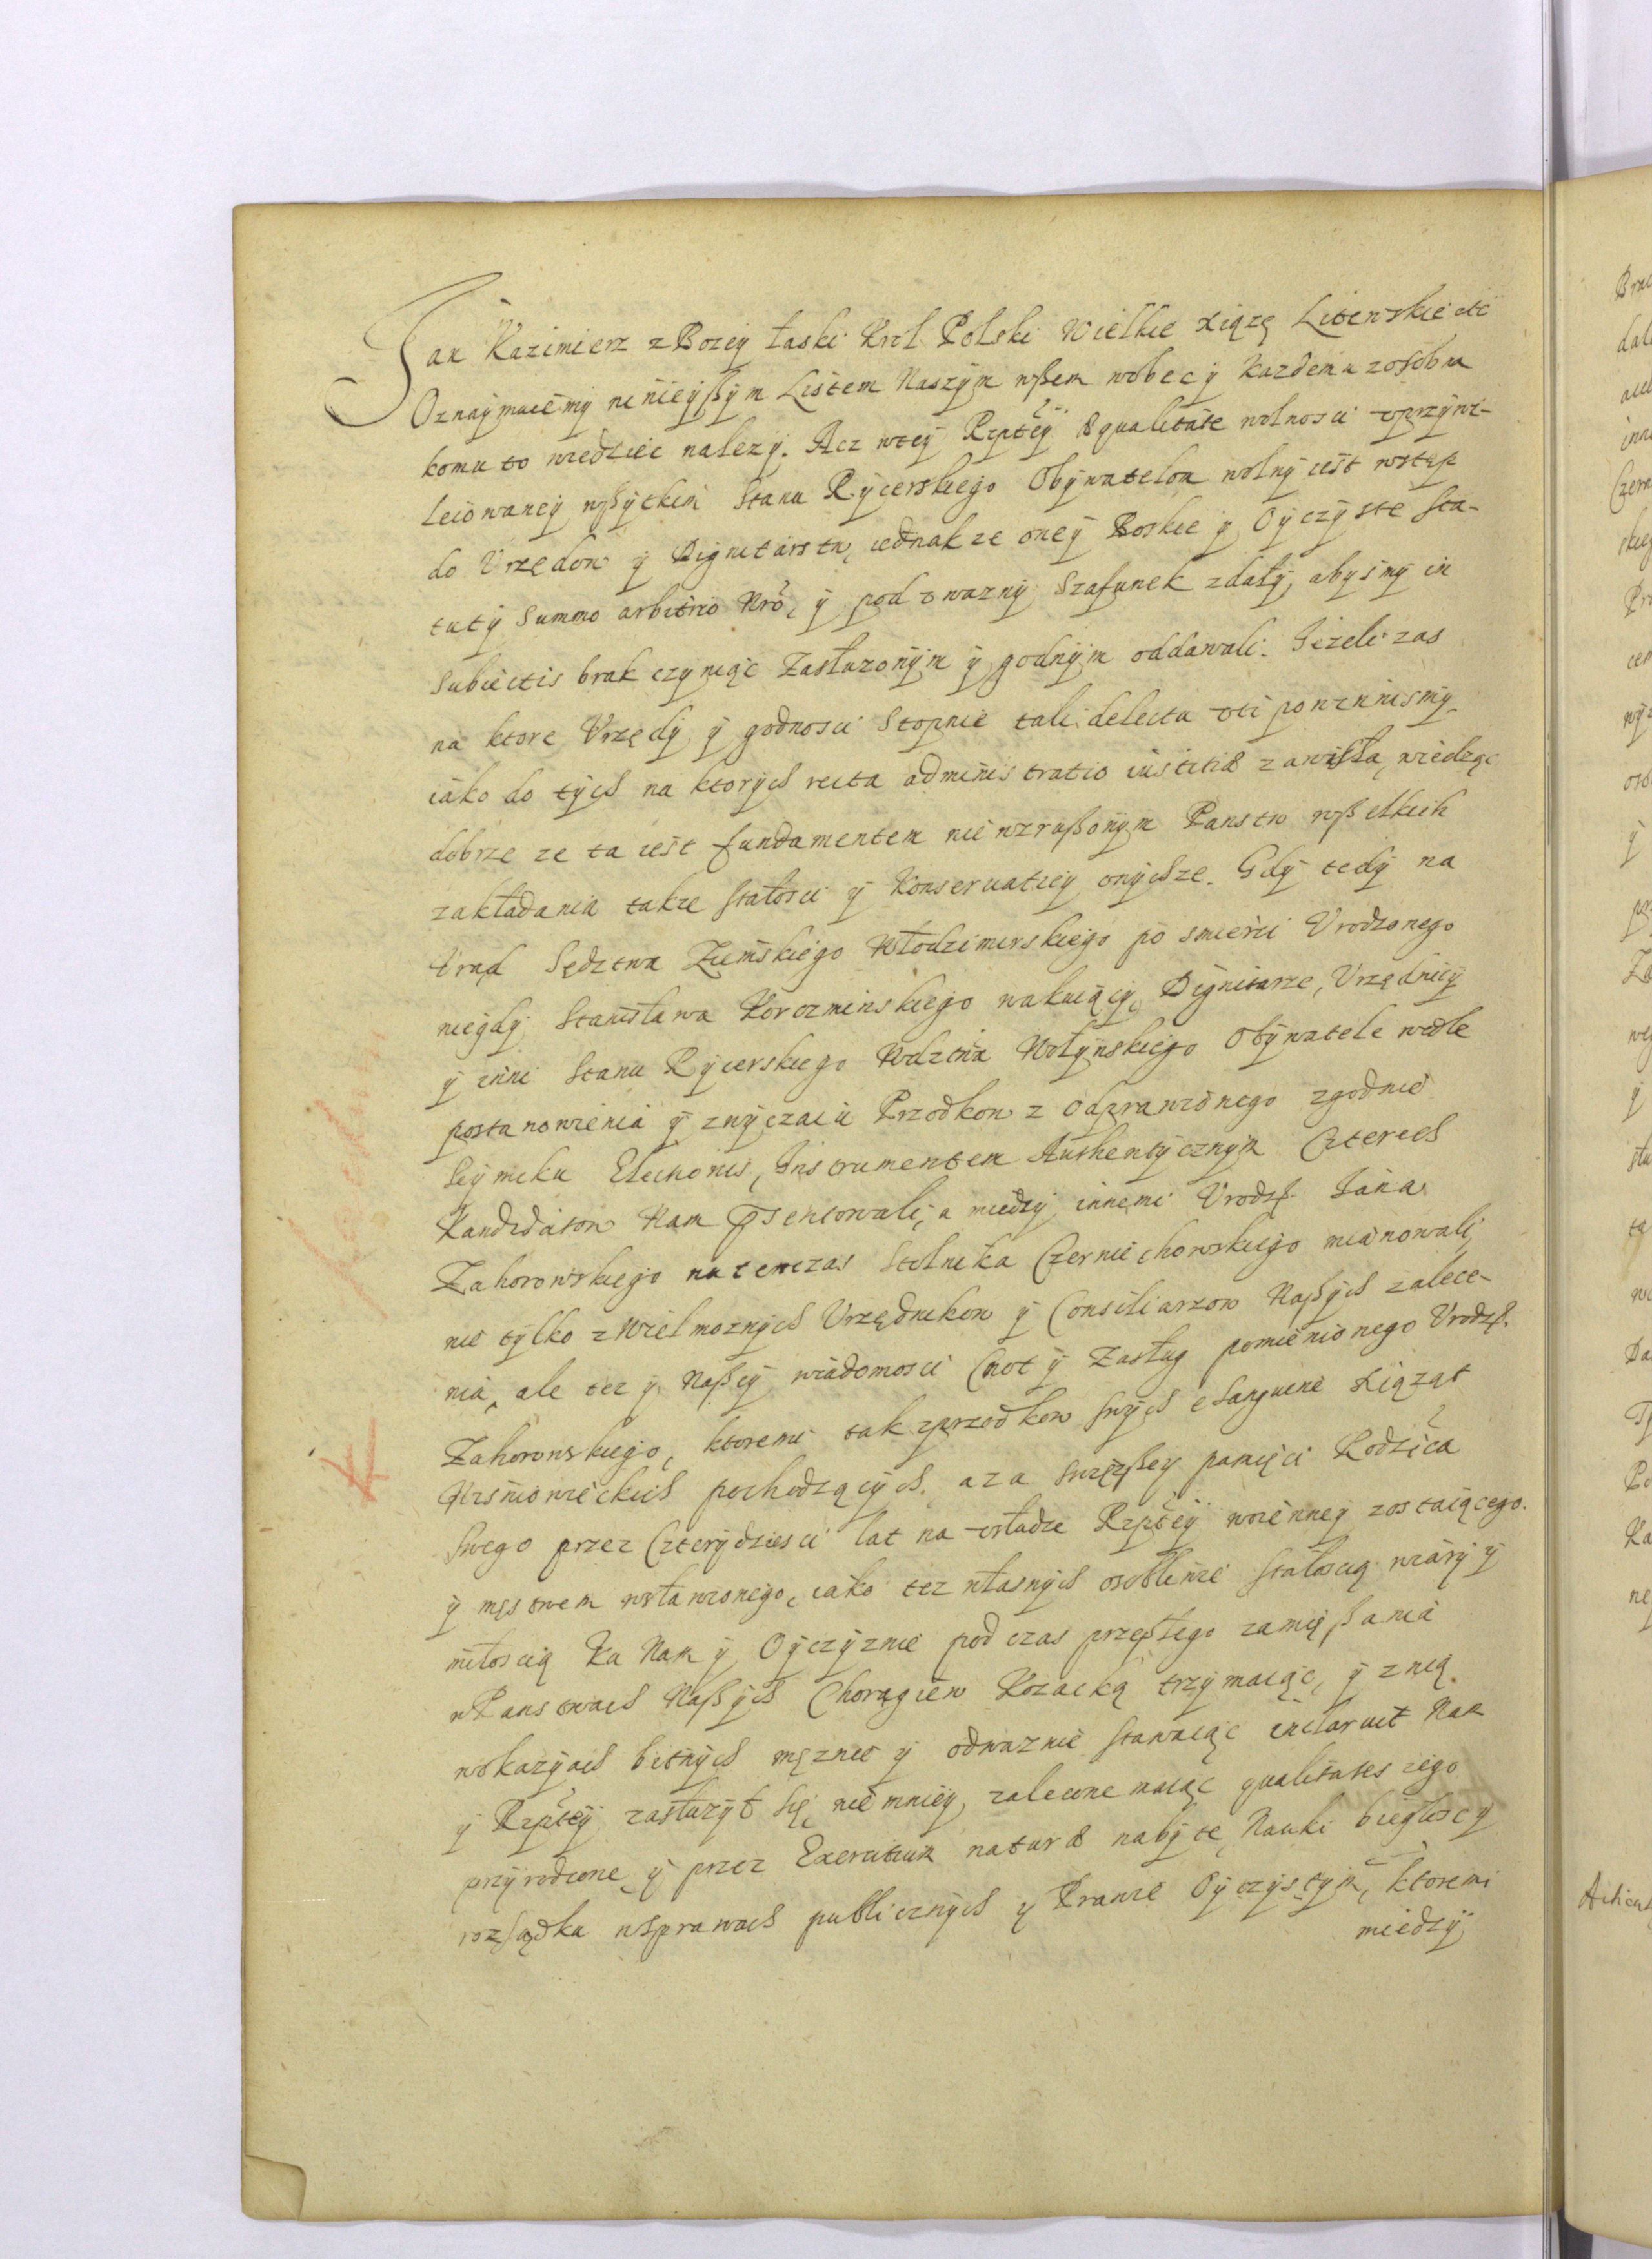 Jan Kazimierz z Bozey łaski Krol Polski Wielkie xiązę Litewskie etc
Oznaymuiemy ninieyßym Listem Naszym wßem wobec y kazdemu zosobna
komu to wiedziec nalezy. Acz wtey Rzptey æqualitate wolnosci uprzywi-
leiowaney wßytkim Stanu Rycerskiego Obywatelom wolny iest wstęp
do Vrzędow y Dignitarstw, iednakze oney Boskie y Oyczyste sta-
tuty Summo arbitrio Nro, y pod uwazny Szafunek zdały, abysmy in
Subiectis brak czyniąc Zasłuzonym y godnym oddawali. Jezeli zas
na ktore Vrzędy y godnosci Stopnie tali delectu uti powinnismy,
iako do tych na ktorych recta administratio iustitiæ zawisła, wiedząc
dobrze ze ta iest fundamentem niewzrußonym Panstw wßelkich
zakładania takze stałosci y Konservatiey onychze. Gdy tedy na
Urąd Sędztwa Ziemskiego Włodzimirskiego po smierci Vrodzonego
niegdy Stanisława Korczminskiego wakuiący, Dignitarze, Vrzędnicy
y inni Stanu Rycerskiego Wdztwa Wołynskiego Obywatele wedle
postanowienia y zwyczaiu Przodkow z odprawionego zgodnie
Seymiku Electionis, Instrumentem Authentycznym Czterech
Kandidatow Nam præsentowali, a miedzy innemi Vrodz. Jana
Zahorowskiego natenczas Stolnika Czerniechowskiego mianowali,
nie tylko z Wielmoznych Vrzędnikow y Consiliarzow Naßych zalece-
nia, ale tez y Naßey wiadomosci Cnot y Zasług pomienionego Vrodz.
Zahorowskiego, ktoremi tak zprzodkow swych e Sanguine Xiąząt
Wisniowieckich pochodzących, a za swiezßey pamięci Rodzica
swego przez Czterydziesci lat na usłudze Rzptey woienney zostaiącego.
y męstwem wsławionego, iako tez własnych osobliwie stałoscią wiary y
miłoscią Ku Nam y Oyczyznie pod czas przeßłego zamięßania
w Panstwach Naßych Chorągiew Kozacką trzymaiąc, y z nią
wokazyach bitnych męznie y odwaznie stawaiąc inclaruit Nam
y Rzptey zasłuzył Się, nie mniey zalecone maiąc qualitates iego
przyrodzone y przez Exercitium naturæ nabyte, Nauki biegłoscy
rozsądku wSprawach publicznych y Prawie Oyczystym, ktoremi
miedzy